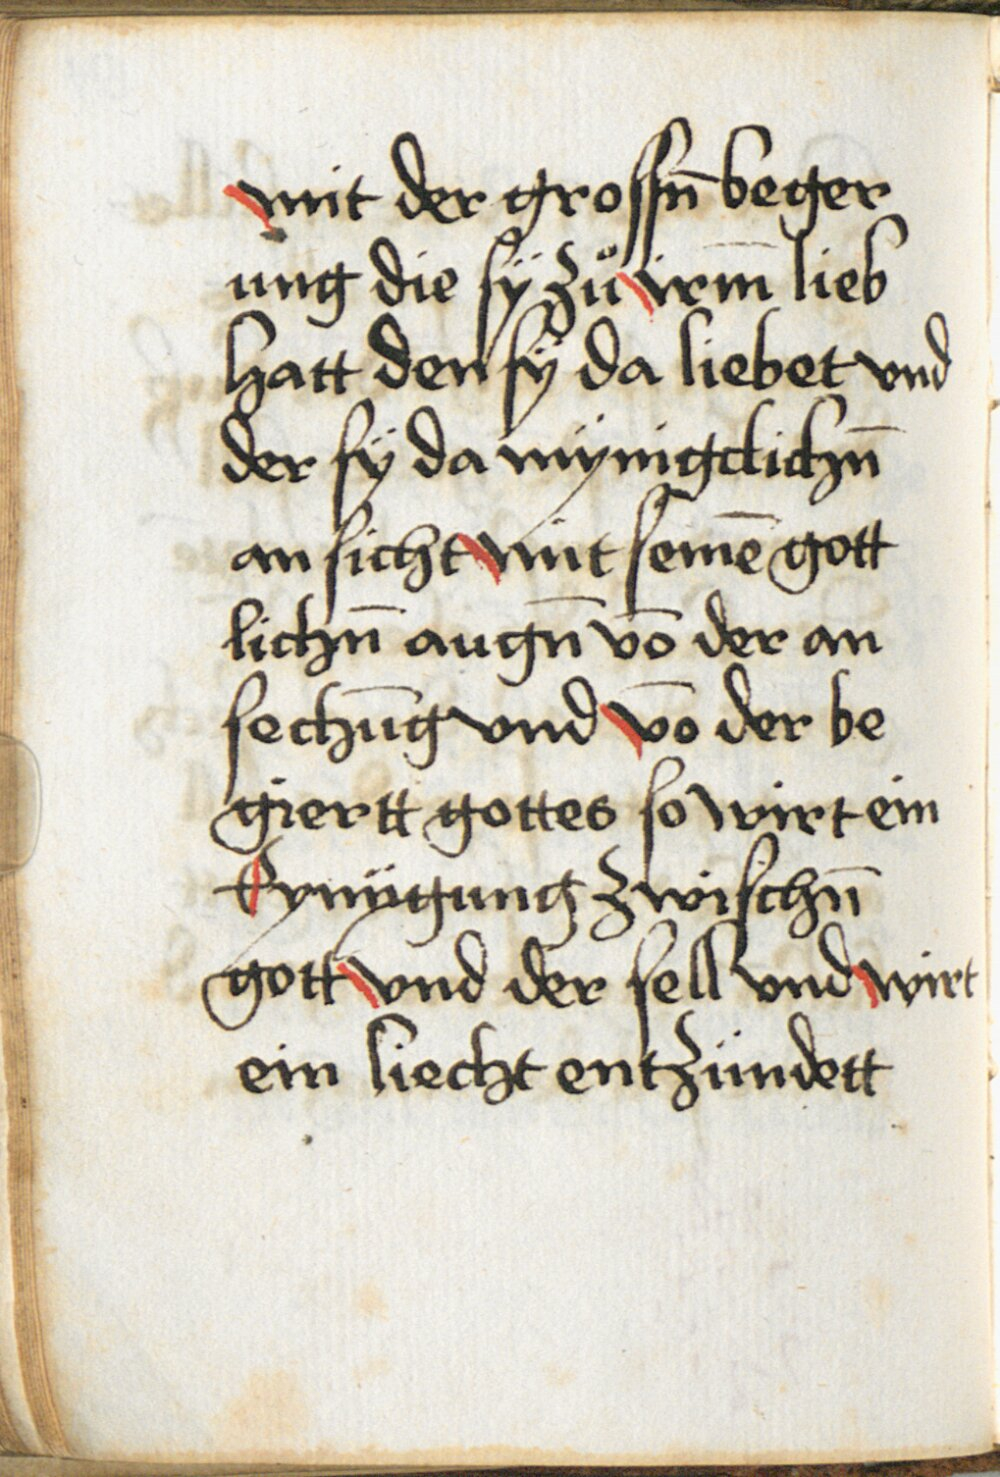 mit der grossn̄ beger
ung die sÿ zů irm̄ lieb
hatt den sÿ da liebet vnd
der sÿ da mÿnigclichn̄
an sicht mit seinē gott
lichn̄ augn̄ vō der an
sechūg vnd vō der be
giertt gottes so wirt ein
Eynÿgung zwischn̄
gott vnd der sell vnd wirt
ein liecht entzündett